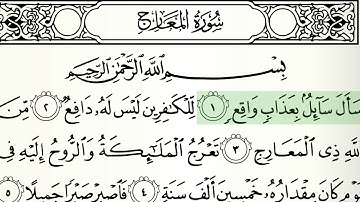 سُورَةُ المَعَارِجِ
بِسْمِ ٱللَّهِ ٱلرَّحْمَٰنِ ٱلرَّحِيمِ
سَأَلَ سَآئِلٌۢ بِعَذَابٍ وَاقِعٍ ١ لِّلْكَٰفِرِينَ لَيْسَ لَهُۥ دَافِعٌ ٢ مِّنَ
ٱللَّهِ ذِى ٱلْمَعَارِجِ ٣ تَعْرُجُ ٱلْمَلَٰٓئِكَةُ وَٱلرُّوحُ إِلَيْهِ فِى
يَوْمٍ كَانَ مِقْدَارُهُۥ خَمْسِينَ أَلْفَ سَنَةٍ ٤ فَٱصْبِرْ صَبْرًا جَمِيلًا ٥